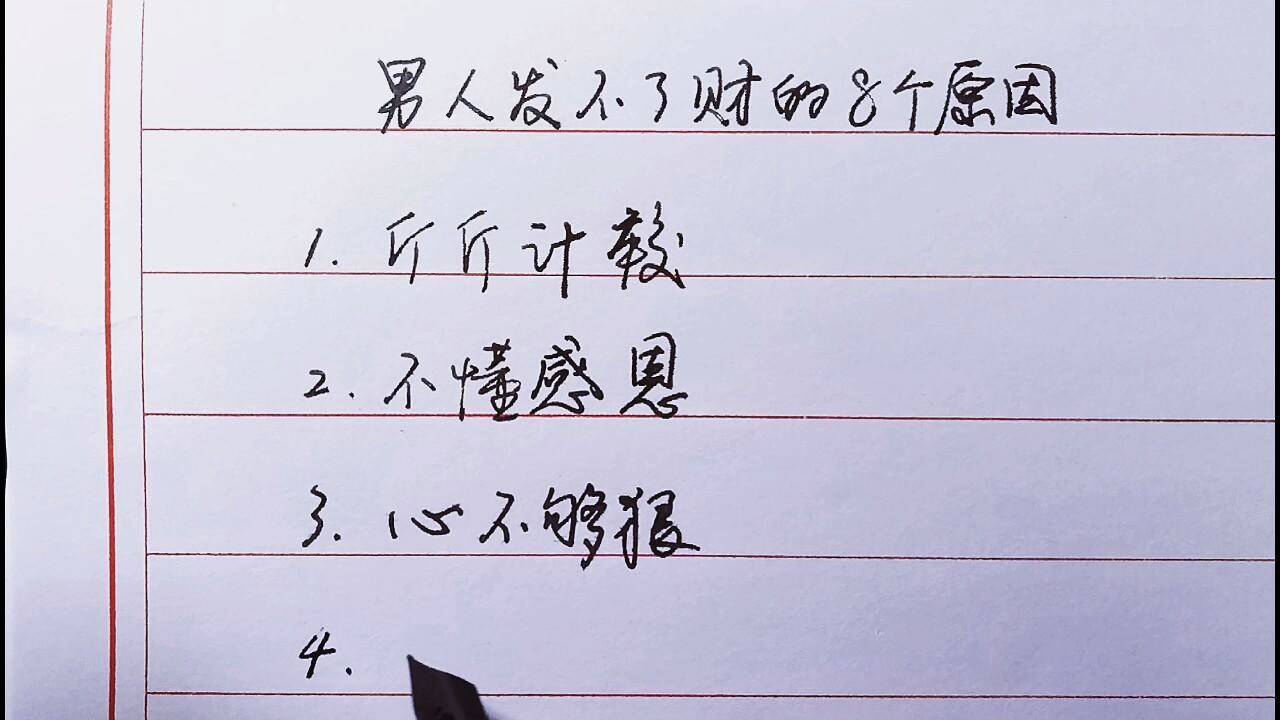 男人发不了财的8个原因
1. 斤斤计较
2. 不懂感恩
3. 心不够狠
4.